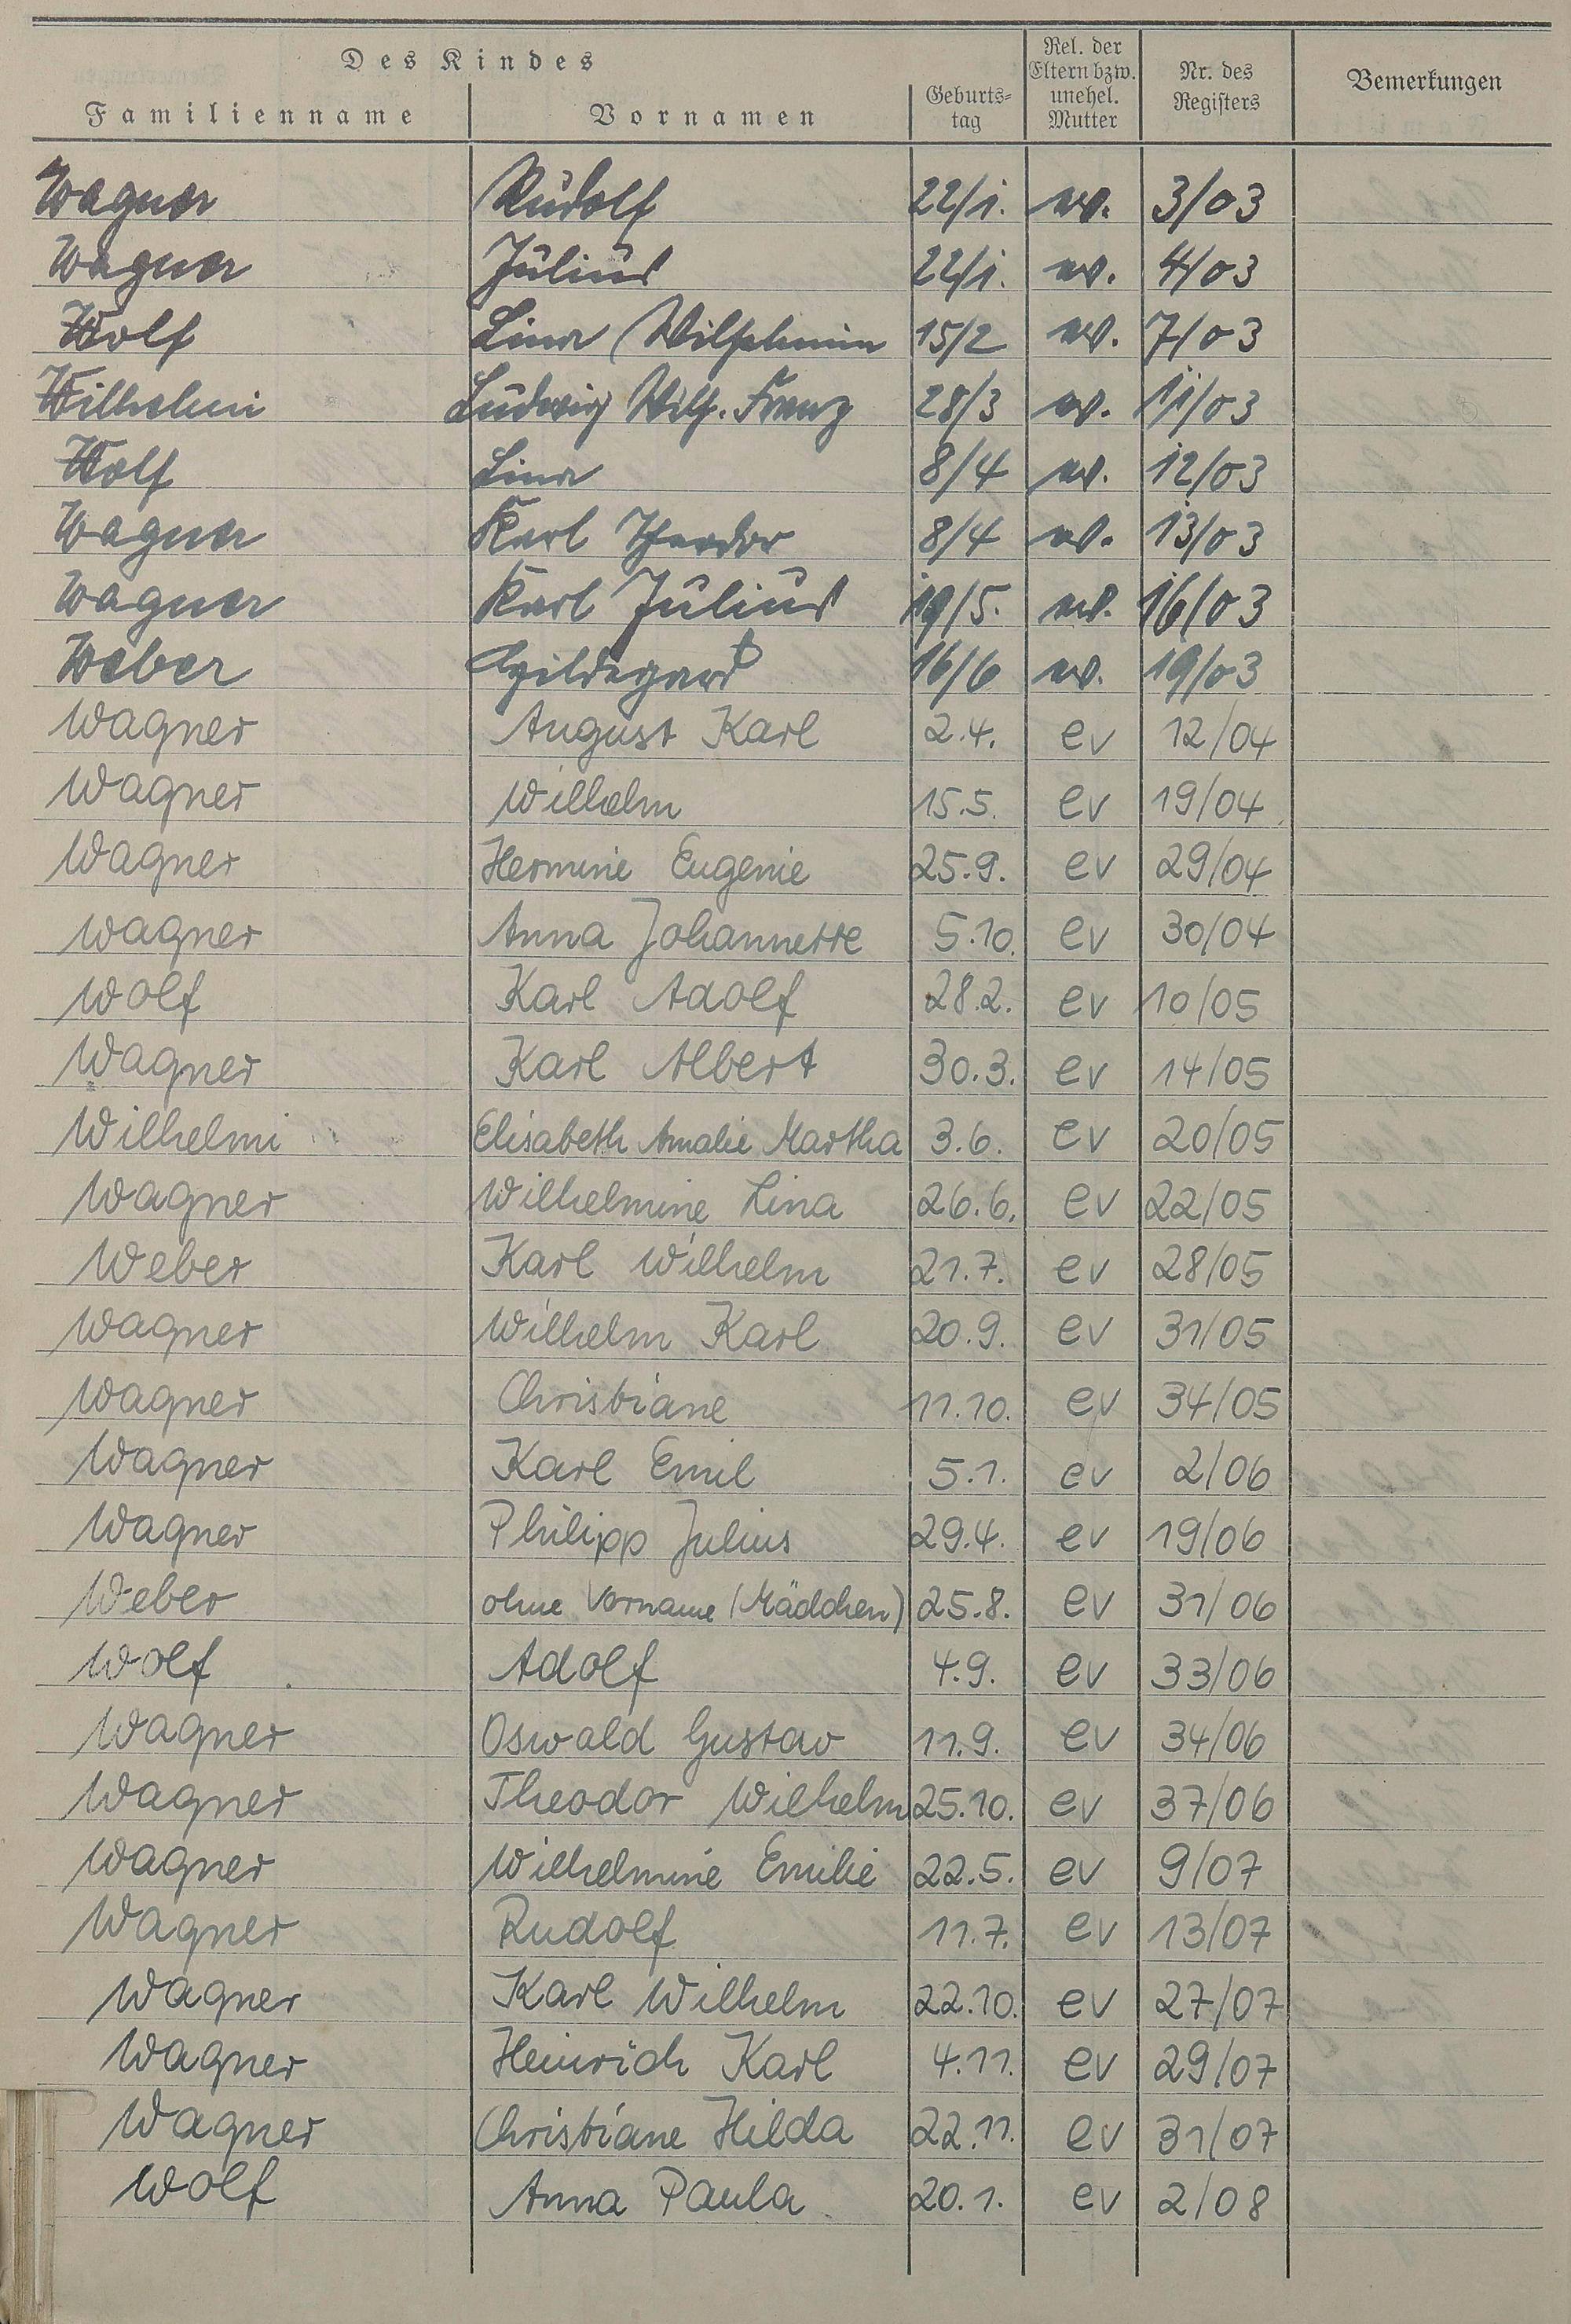 Des Kindes
Familienname Vornamen Geburts=tag Rel. der Eltern bzw. unehel. Mutter Nr. des Registers Bemerkungen
Wagner Rudolf 22/1. ev. 3/03
Wagner Julius 22/1. ev. 4/03
Wolf Lina (Wilhelmin 15/2 ev. 7/03
Wilhelmi Ludwig Wilh. Franz 28/3 ev. 11/03
Wolf Lina 8/4 ev. 12/03
Wagner Karl Theodor 8/4 ev. 13/03
Wagner Karl Julius 19/5. ev. 16/03
Weber Hildegard 16/6 ev. 19/03
Wagner August Karl 2.4. ev 12/04
Wagner Wilhelm 15.5. ev 19/04
Wagner Hermine Eugenie 25.9. ev 29/04
Wagner Anna Johannette 5.10. ev 30/04
Wolf Karl Adolf 28.2. ev 10/05
Wagner Karl Albert 30.3. ev 14/05
Wilhelmi Elisabeth Amalie Martha 3.6. ev 20/05
Wagner Wilhelmine Lina 26.6. ev 22/05
Weber Karl Wilhelm 21.7. ev 28/05
Wagner Wilhelm Karl 20.9. ev 31/05
Wagner Christiane 11.10. ev 34/05
Wagner Karl Emil 5.1. ev 2/06
Wagner Philipp Julius 29.4. ev 19/06
Weber ohne Vorname (Mädchen) 25.8. ev 31/06
Wolf Adolf 4.9. ev 33/06
Wagner Oswald Gustav 11.9. ev 34/06
Wagner Theodor Wilhelm 25.10. ev 37/06
Wagner Wilhelmine Emilie 22.5. ev 9/07
Wagner Rudolf 11.7. ev 13/07
Wagner Karl Wilhelm 22.10. ev 27/07
Wagner Heinrich Karl 4.11. ev 29/07
Wagner Christiane Hilda 22.11. ev 31/07
Wolf Anna Paula 20.1. ev 2/08